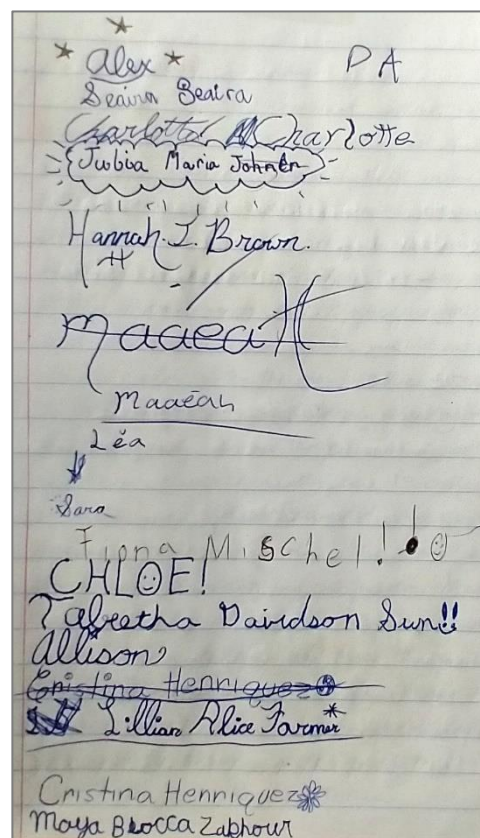 Alex PA
Seaira Beaira
Charlotte Charlotte
Maria
Hannah. L. Brown.
H
Maaeah
Léa
Sara
Fiona Mischel!
CHLOE!
Tabretha Davidson Sun!!
Allison
Cristina Henriquez
Lillian Alice Farmer*
Cristina Henriquez
Maya Brocca Zabhour